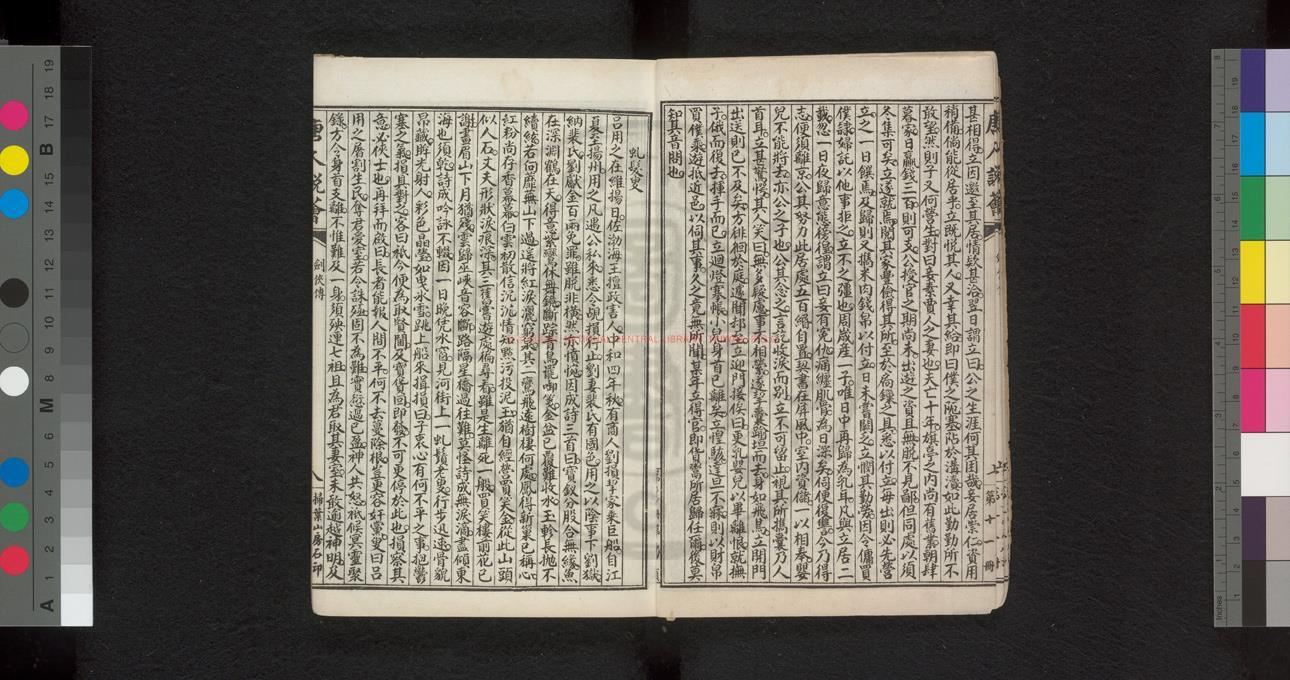 甚相得立因邀至其居情欵甚洽翌日謂立曰公之生涯何其困哉妾居崇仁資用
稍備倘能從居乎立既悅其人又幸其給即曰僕之阨塞阽於溝瀆如此勤勤所不
敢望焉則子又何營生對曰妾素賈人之妻也夫亡十年旗亭之內尚有舊業朝肆
暮家日贏錢三百則可支公授官之期尚未出遊之資且無脫不見鄙但同處以須
冬集可矣立遂就焉閱其家豐儉得其所至於扃鏁之具悉以付立每出則必先營
立之一日饌焉及歸則又攜米肉錢帛以付立日未嘗闕立憫其勤勞因令傭買
僕隸婦託以他事拒之立不之彊也周歲產一子唯日中再歸為乳耳凡與立居二
載忽一日夜歸意態惶惶謂立曰妾有寃仇痛纏肌骨為日深矣伺便復讐今乃得
志便須離京公其努力此居處五百緡自置契書在屏風中室內資儲一以相奉嬰
兒不能將去亦公之子也公其念之言訖收淚而別立不可留止視其所攜囊乃人
首耳立甚驚愕其人笑曰無多疑慮事不相縈遂挈囊踰垣而去身如飛鳥立開門
出送則已不及矣方徘徊於庭遽聞却至立迎門接俟曰更乳嬰兒以畢離恨就撫
子俄而復去揮手而已立迴燈褰帳小兒身首已離矣立惶駭達旦不寐則以財帛
買僕乘遊抵近邑以伺其事久之竟無所聞某年立得官即貨鬻所居歸任爾後莫
知其音問也
第十一冊
虬髯叟
呂用之在維揚日佐渤海王擅政害人中和四年秋有商人劉損挈家乘巨船自江
夏至揚州用之凡遇公私來悉令覘損行止劉妻裴氏有國色用之以陰事下劉獄
納裴氏劉獻金百兩免罪雖脫非橫然亦憤惋因成詩三首曰寶釵分股合無緣魚
在深淵鶴在天得意紫鸞休舞鏡斷踪青鳥罷啣箋金盆已覆難收水玉軫長拋不
續絃若向蘼蕪山下過遙將紅淚灑窮泉其二鸞飛遠樹棲何處鳳得新巢已稱心
紅粉尚存香幕幕白雲初散信沉沉情知點污投泥玉猶自經營買笑金從此山頭
似人石丈夫形狀淚痕深其三舊嘗遊處徧尋看雖是生離死一般買笑樓前花已
謝畫眉山下月猶殘雲歸巫峽音容斷路隔星橋過往難莫怪詩成無淚滴盡傾東
海也須乾詩成吟詠不輟因一日晚凭水窗見河街上一虬鬚老叟行步迅速骨貌
昂藏眸光射人彩色晶瑩如曳氷雪跳上船來揖損曰子衷心有何不平之事抱鬱
塞之氣損具對之客曰秖今便為取賢閫及寶貨囘即發不可更停於此也損察其
意必俠士也再拜而啟曰長者能報人間不平何不去蔓除根豈更容奸黨叟曰呂
用之屠割生民奪君愛室若令誅殛固不為難實愆過已盈神人共怒秪候冥靈聚
錄方合身首支離不惟難及一身須殃連七祖且為君取其妻室未敢逾越神明及
唐人說薈
劍俠傳
八
掃葉山房石印